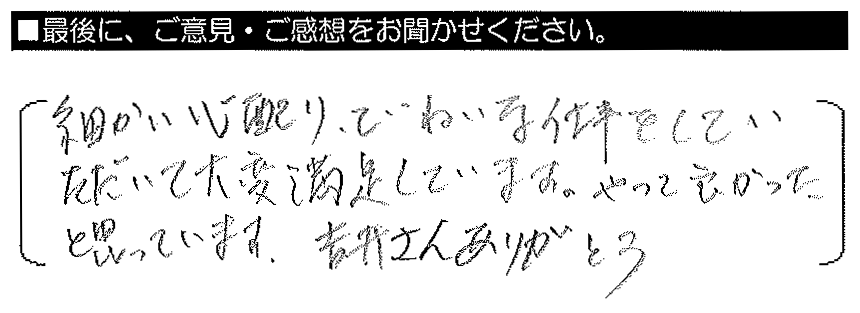 ■最後に、ご意見・ご感想をお聞かせください。
細かい心配り、ていねいな仕事をしてい
ただいて大変満足しています。やって良かった
と思っています。吉井さんありがとう